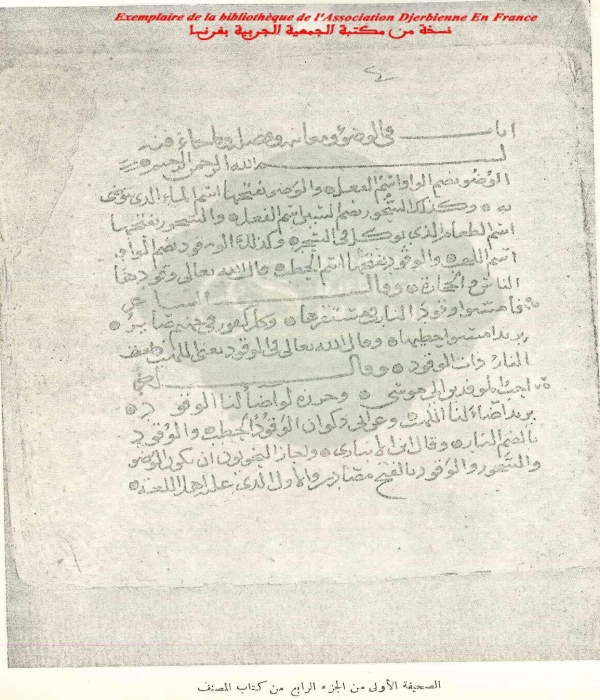 Exemplaire de la bibliothèque de l'Association Djerbienne En France
نسخة من مكتبة الجمعية الجربية بفرنسا
باب في الوضوء ومعانيه وفضل وما جاء فيه
بسم الله الرحمن الرحيم
الوضوء بضم الواو اسم الفعل والوضو بفتحها اسم الماء الذي يتوضى
به وكذلك السحور بضم السين اسم الفعل والسحور بفتحها
اسم الطعام الذي يوكل في السحر وكذلك الوقود بضم الواو
اسم اللهب والوقود بفتحها اسم الحطب قال الله تعالى وقودها
الناس والحجارة وقال الشاعر
فأمسوا وقود النار في مستقرها وكل كفور في جهنم صاير
يريد امسوا حطبها وقال الله تعالى في الوقود يعني اللهب
النار ذات الوقود وقال
احب الموقدين الى موسى وحرزة لو اضا لنا الوقود
يريد اضاء لنا اللهب وعن ابي ذكوان الوقود الحطب والوقود
بالضم النار وقال ابن الانباري واجاز النحويون ان يكون الوضو
والسحور والوقود بالفتح مصادر والأول الذي عليه اهل اللغة
الصحيفة الأولى من الجزء الرابع من كتاب المصنف